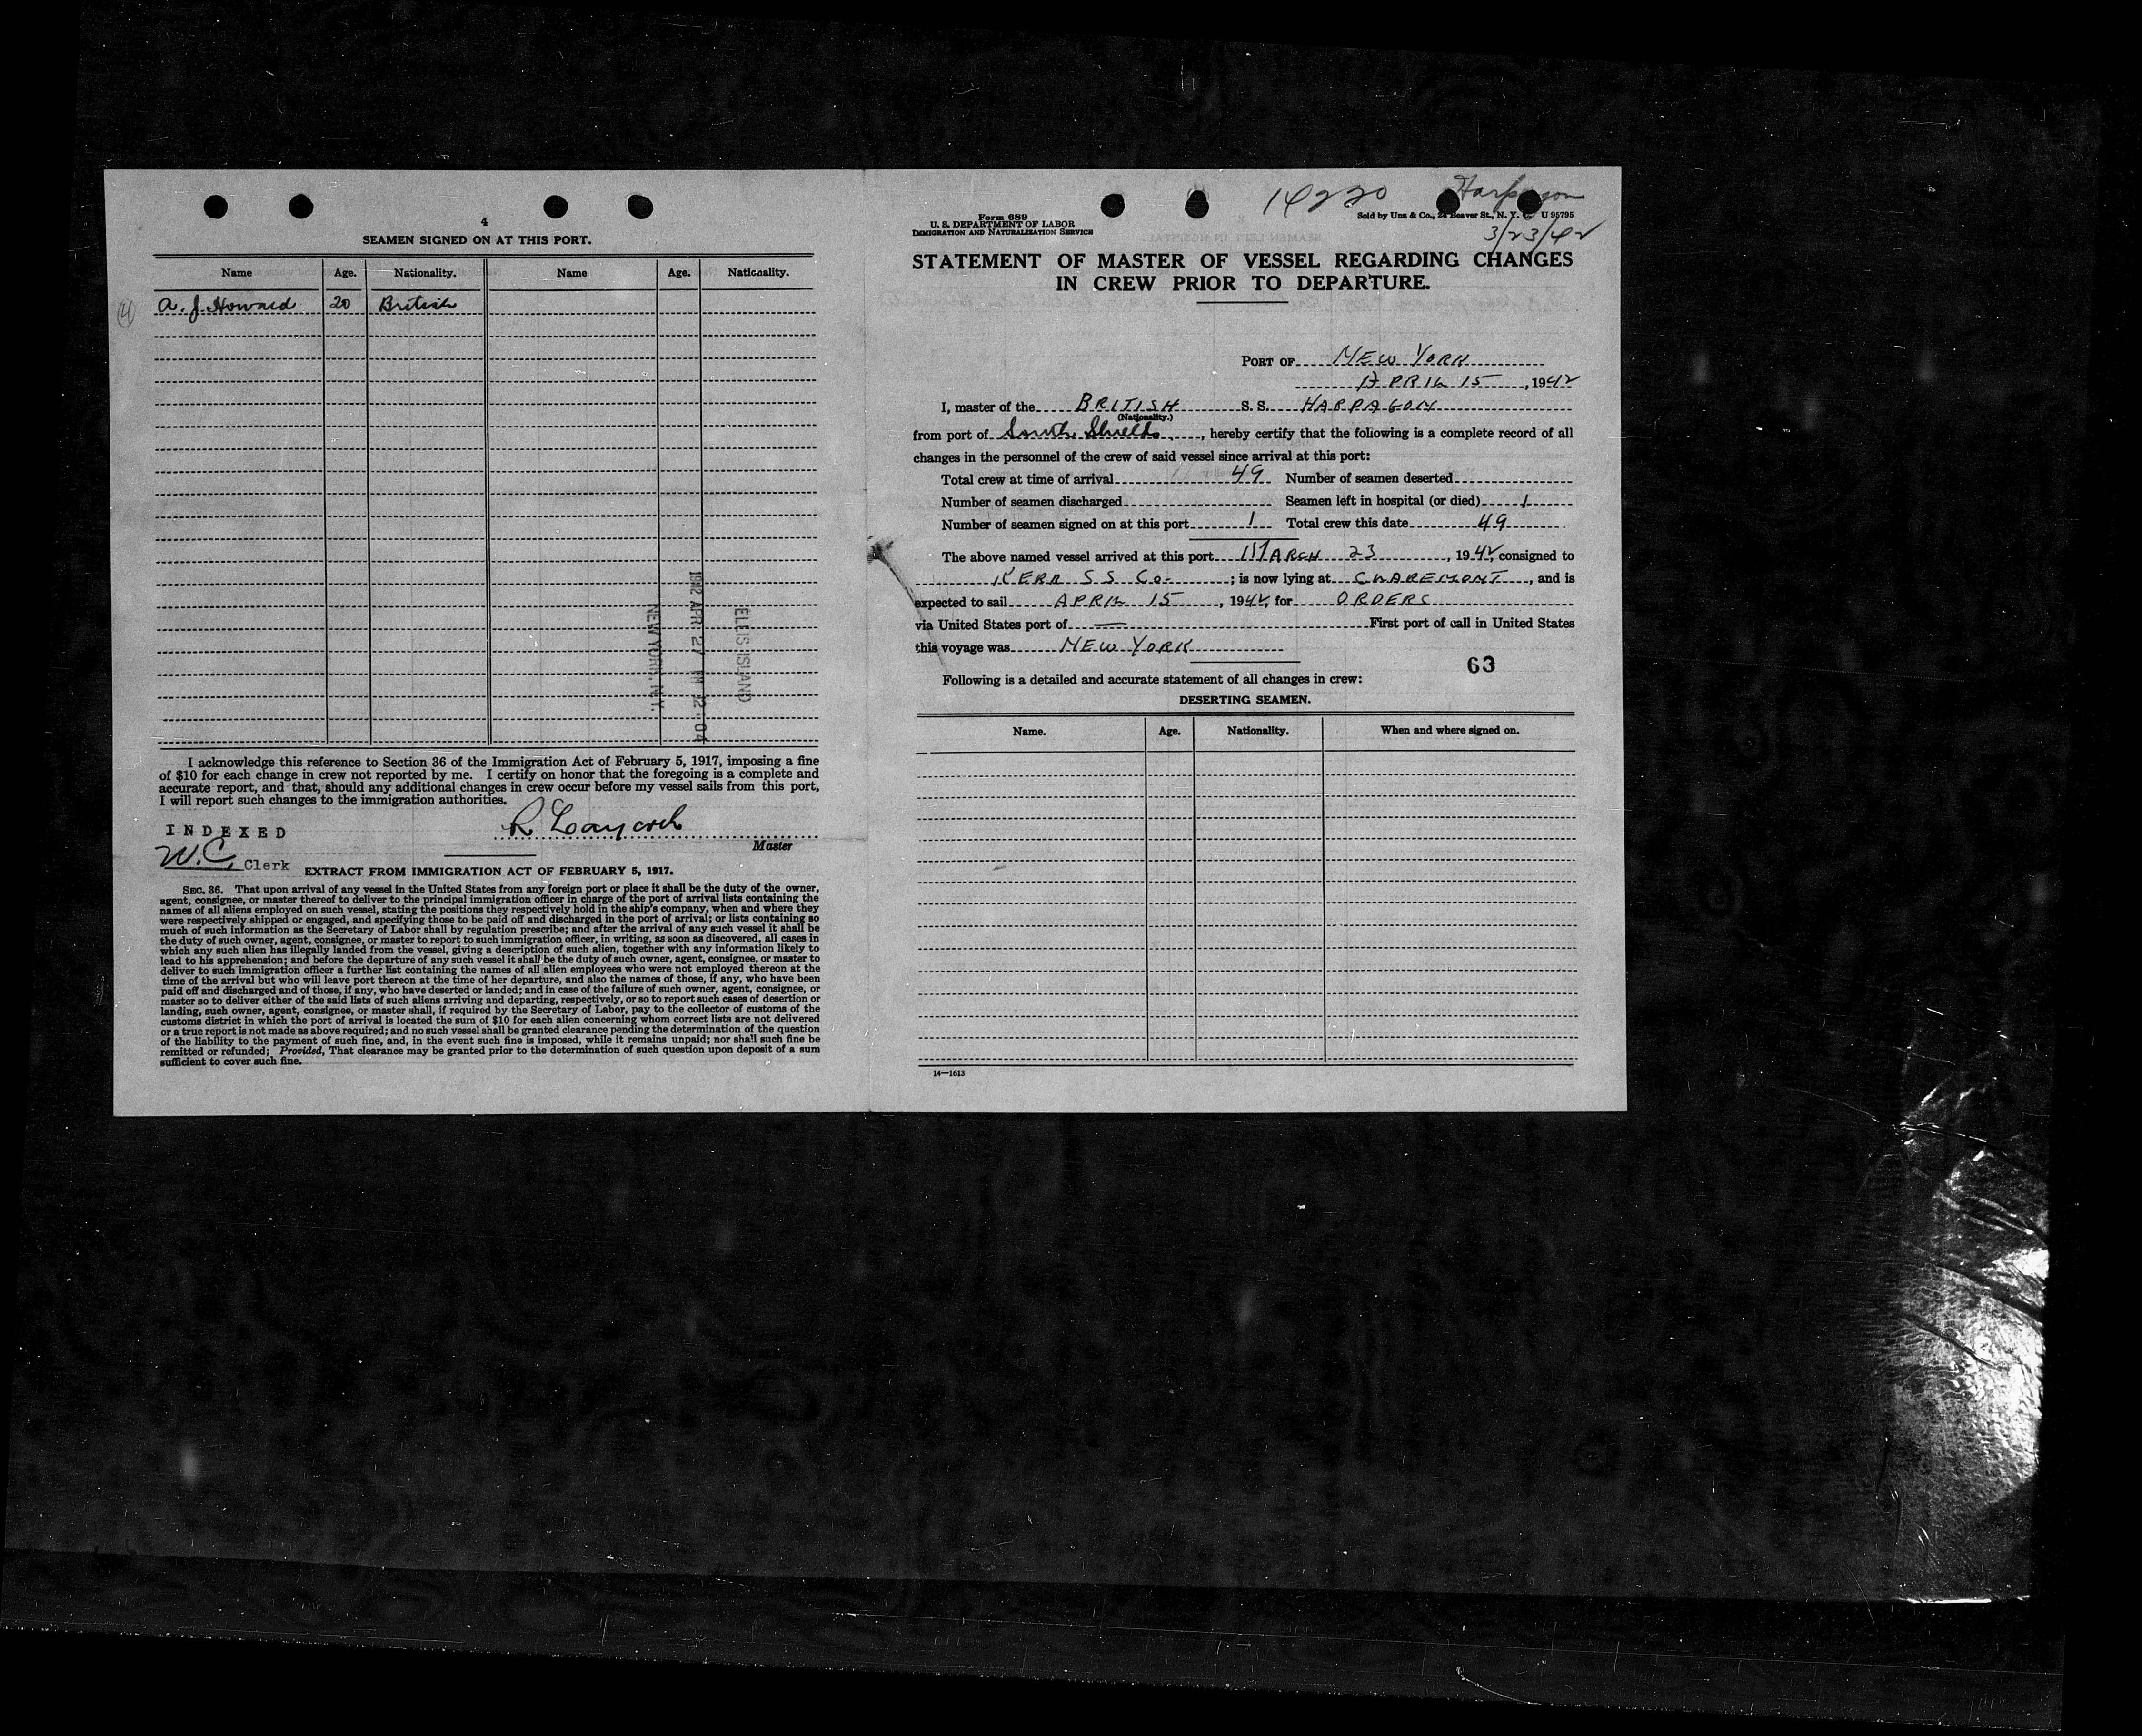 4
SEAMEN SIGNED ON AT THIS PORT.
Name Age. Nationality. Name Age. Nationality.
(4) A. J. Howard 20 British
ELLIS ISLAND
1942 APR 27 12:04
NEW YORK, N.Y.
I acknowledge this reference to Section 36 of the Immigration Act of February 5, 1917, imposing a fine
of $10 for each change in crew not reported by me. I certify on honor that the foregoing is a complete and
accurate report, and that, should any additional changes in crew occur before my vessel sails from this port,
I will report such changes to the immigration authorities.
INDEXED
R Laycock
Master
W.C. Clerk
EXTRACT FROM IMMIGRATION ACT OF FEBRUARY 5, 1917.
SEC. 36. That upon arrival of any vessel in the United States from any foreign port or place it shall be the duty of the owner,
agent, consignee, or master thereof to deliver to the principal immigration officer in charge of the port of arrival lists containing the
names of all aliens employed on such vessel, stating the positions they respectively hold in the ship's company, when and where they
were respectively shipped or engaged, and specifying those to be paid off and discharged in the port of arrival; or lists containing so
much of such information as the Secretary of Labor shall by regulation prescribe; and after the arrival of any such vessel it shall be
the duty of such owner, agent, consignee, or master to report to such immigration officer, in writing, as soon as discovered, all cases in
which any such alien has illegally landed from the vessel, giving a description of such alien, together with any information likely to
lead to his apprehension; and before the departure of any such vessel it shall be the duty of such owner, agent, consignee, or master to
deliver to such immigration officer a further list containing the names of all alien employees who were not employed thereon at the
time of the arrival but who will leave port thereon at the time of her departure, and also the names of those, if any, who have been
paid off and discharged and of those, if any, who have deserted or landed; and in case of the failure of such owner, agent, consignee, or
master so to deliver either of the said lists of such aliens arriving and departing, respectively, or so to report such cases of desertion or
landing, such owner, agent, consignee, or master shall, if required by the Secretary of Labor, pay to the collector of customs of the
customs district in which the port of arrival is located the sum of $10 for each alien concerning whom correct lists are not delivered
or a true report is not made as above required; and no such vessel shall be granted clearance pending the determination of the question
of the liability to the payment of such fine, and, in the event such fine is imposed, while it remains unpaid; nor shall such fine be
remitted or refunded; Provided, That clearance may be granted prior to the determination of such question upon deposit of a sum
sufficient to cover such fine.
14220 Harpagon
3/23/42
Form 689
U. S. DEPARTMENT OF LABOR
IMMIGRATION AND NATURALIZATION SERVICE
Sold by Unz & Co., 24 Beaver St., N. Y. C. U 95795
STATEMENT OF MASTER OF VESSEL REGARDING CHANGES
IN CREW PRIOR TO DEPARTURE.
PORT OF NEW YORK
APRIL 15, 1942
I, master of the BRITISH S. S. HARPAGON
(Nationality.)
from port of South Shields, hereby certify that the following is a complete record of all
changes in the personnel of the crew of said vessel since arrival at this port:
Total crew at time of arrival 49 Number of seamen deserted
Number of seamen discharged Seamen left in hospital (or died) 1
Number of seamen signed on at this port 1 Total crew this date 49
The above named vessel arrived at this port MARCH 23, 1942, consigned to
KERR S S Co.; is now lying at CLAREMONT, and is
expected to sail APRIL 15, 1942, for ORDERS
via United States port of — First port of call in United States
this voyage was NEW YORK
63
Following is a detailed and accurate statement of all changes in crew:
DESERTING SEAMEN.
Name. Age. Nationality. When and where signed on.
14—1613